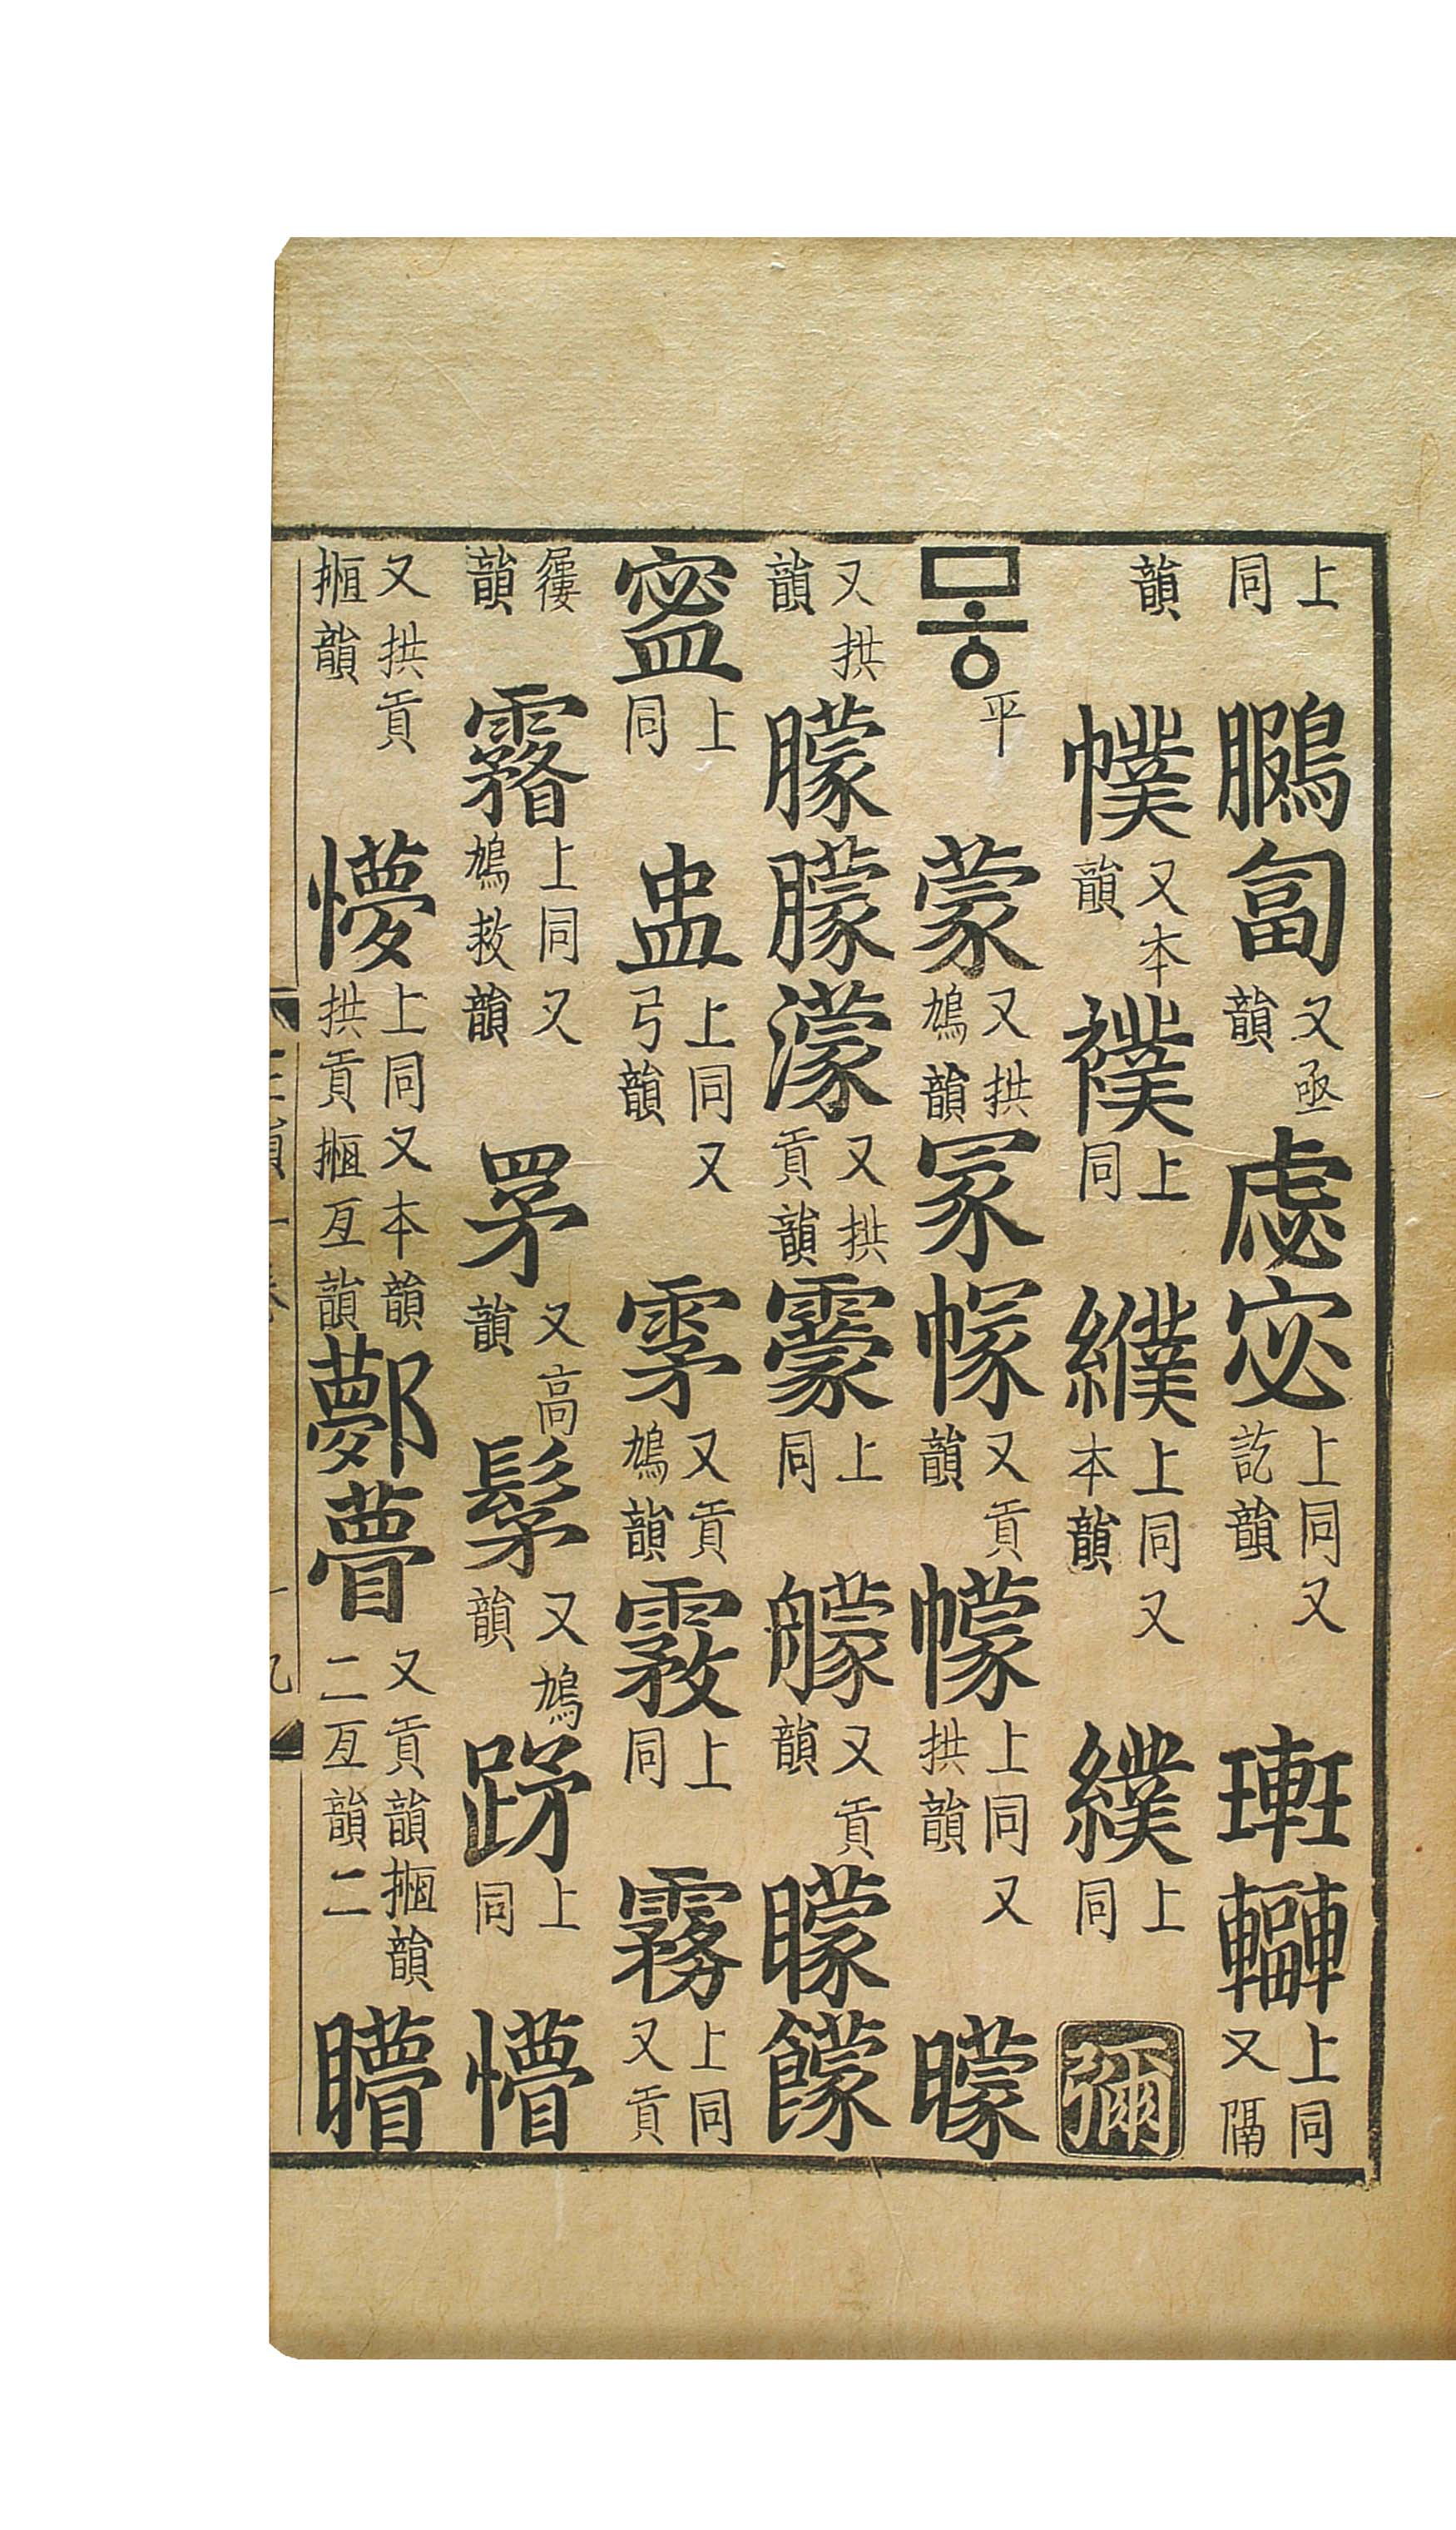 上同 鵬 匐 又亟韻 虙 宓 上同又訖韻 上同又隔
韻 幞 又本韻 襆 上同 纀 上同又本韻 纀 上同 彌
몽 平 蒙 又拱鳩韻 冡 幏 又貢韻 幪 上同又拱韻 曚
又拱韻 朦 朦 濛 又拱貢韻 靀 上同 艨 又貢韻 矇 饛
上同 上同又弓韻 雺 又貢鳩韻 霚 上同 霧 上同又貢
韻 霿 上同又鳩救韻 罞 又高韻 髳 又鳩韻 上同 懵
又拱貢揯韻 上同又本韻拱貢揯亙韻 鄸 瞢 又貢韻揯韻二亙韻二 矒